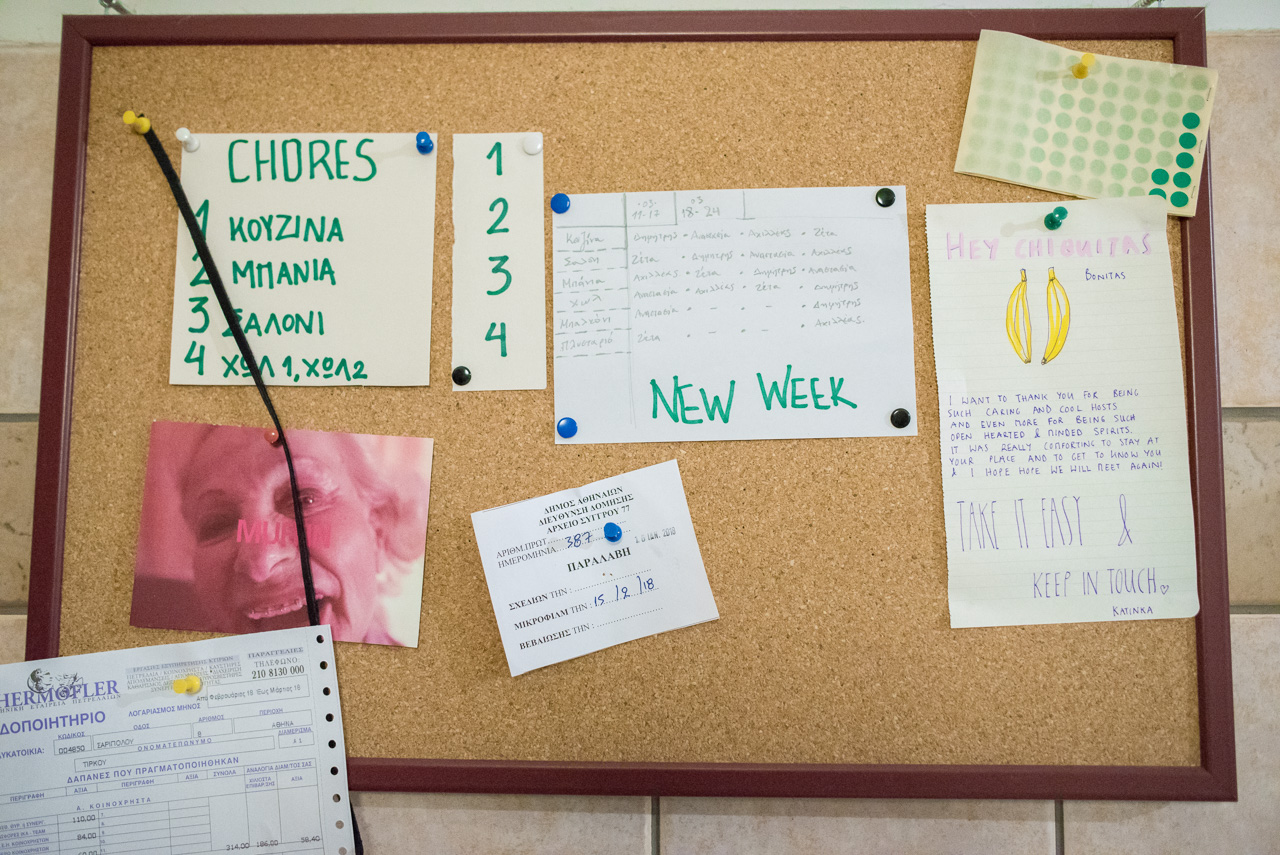 CHORES
1 ΚΟΥΖΙΝΑ
2 ΜΠΑΝΙΑ
3 ΣΑΛΟΝΙ
4 ΧΩΛ 1, ΧΩΛ2
1
2
3
4
03 11-17
03 18-24
Κουζίνα Δημήτρης • Αναστασία • Αχιλλέας • Ζέτα
Σαλόνι Ζέτα • Δημήτρης • Αναστασία • Αχιλλέας
Μπάνια Αχιλλέας • Ζέτα • Δημήτρης • Αναστασία
Χωλ Αναστασία • Αχιλλέας • Ζέτα • Δημήτρης
Μπαλκόνι Αναστασία • - • - • Δημήτρης
Πλυσταριό Ζέτα • - • - • Αχιλλέας
NEW WEEK
HEY CHIQUITAS
BONITAS
I WANT TO THANK YOU FOR BEING
SUCH CARING AND COOL HOSTS
AND EVEN MORE FOR BEING SUCH
OPEN HEARTED & MINDED SPIRITS.
IT WAS REALLY COMFORTING TO STAY AT
YOUR PLACE AND TO GET TO KNOW YOU
& I HOPE HOPE WE WILL MEET AGAIN!
TAKE IT EASY &
KEEP IN TOUCH ♡
KATINKA
ΔΗΜΟΣ ΑΘΗΝΑΙΩΝ
ΔΙΕΥΘΥΝΣΗ ΔΟΜΗΣΗΣ
ΑΡΧΕΙΟ ΣΥΓΓΡΟΥ 77
ΑΡΙΘΜ.ΠΡΩΤ. 387
ΗΜΕΡΟΜΗΝΙΑ 10 ΙΑΝ. 2018
ΠΑΡΑΛΑΒΗ
ΣΧΕΔΙΩΝ ΤΗΝ :
ΜΙΚΡΟΦΙΛΜ ΤΗΝ : 15/2/18
ΒΕΒΑΙΩΣΗΣ ΤΗΝ :
HERMOFLER
ΠΑΡΑΓΓΕΛΙΕΣ
ΤΗΛΕΦΩΝΟ:
210 8130 000
ΛΟΓΑΡΙΑΣΜΟΣ ΜΗΝΟΣ
Από Φεβρουάριος 18 Έως Μάρτιος 18
ΔΟΠΟΙΗΤΗΡΙΟ
ΚΩΔΙΚΟΣ ΟΔΟΣ ΑΡΙΘΜΟΣ ΠΕΡΙΟΧΗ
ΥΚΑΤΟΙΚΙΑ: 004850 ΣΑΡΙΠΟΛΟΥ 8 ΑΘΗΝΑ
ΟΝΟΜΑΤΕΠΩΝΥΜΟ ΔΙΑΜΕΡΙΣΜΑ
ΤΙΡΚΟΥ Α 1
ΔΑΠΑΝΕΣ ΠΟΥ ΠΡΑΓΜΑΤΟΠΟΙΗΘΗΚΑΝ
ΑΝΑΛΟΓΙΑ ΔΙΑΜ/ΤΟΣ ΣΑΣ
ΠΕΡΙΓΡΑΦΗ ΑΞΙΑ ΠΕΡΙΓΡΑΦΗ ΑΞΙΑ ΣΥΝΟΛΑ ΑΞΙΑ
Α. ΚΟΙΝΟΧΡΗΣΤΑ
110,00
84,00
314,00 186,00 58,40